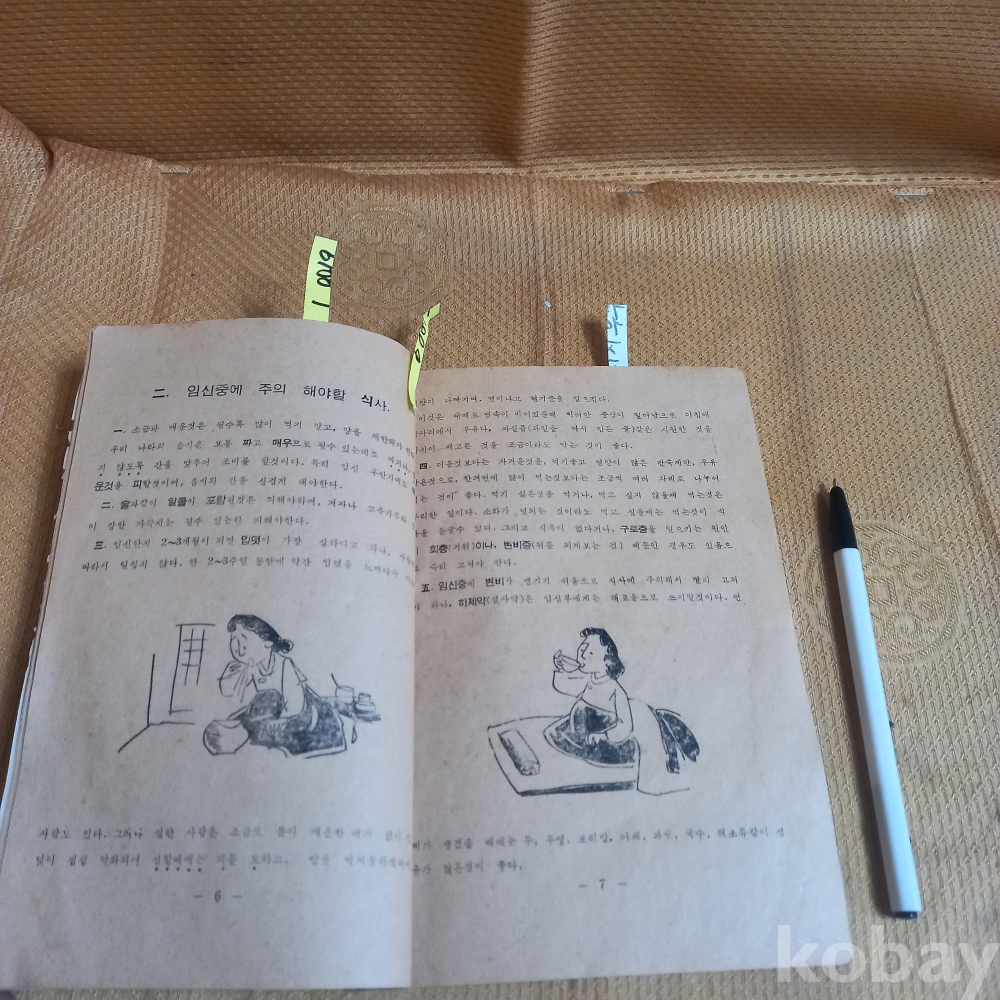 10019
二. 임신중에 주의 해야할 식사.
一. 소금과 매운것은 될수록 많이 먹지 말고, 양을 제한해야
우리 나라의 음식은 보통 짜고 매우므로 될수 있는대로
지 않도록 간을 맞추어 조미를 할것이다. 특히 임신
운것을 피할것이며, 음식의 간을 싱겁게 해야한다.
二. 술과같이 알콜이 포함된것은 피해야하며, 겨자나 고추가루와
이 강한 자극제는 될수 있는한 피해야한다.
三. 임신한지 2~3개월이 되면 입덧이 가장 심하다고 하나,
따라서 일정치 않다. 한 2~3주일 동안에 약간 입덧을 느끼다가
사람도 있다. 그러나 심한 사람은 조금도
덧이 점점 악화되어 심할때에는 피를 토하고.
— 6 —
나빠지며, 열이나고 현기증을 일으킨다.
이것은 대체로 뱃속이 비어있을때 이러한 증상이 일어남으로 아침에
잠자리에서 우유나, 과실즙(과일을 짜서 만든 물)같은 시원한 것을
마시어, 배고픈 것을 조금이라도 막는 것이 좋다.
四. 더운것보다는 차거운것을, 먹기좋고 영양이 많은 반숙계란, 우유
같은것으로, 한꺼번에 많이 먹는것보다는 조금씩 여러 차례로 나누어
먹는 것이 좋다. 먹기 싫은것을 먹거나, 먹고 싶지 않을때 먹는것은
무리한 일이다. 소화가 잘되는 것이라도 먹고 싶을때는 먹는것이 식
욕을 돋굴수 있다. 그리고 식욕이 없다거나, 구토증을 일으키는 원인
이 회충(거위)이나, 변비증(뒤를 되게보는 것) 때문인 경우도 있음으
로 속히 고쳐야 한다.
五. 임신중에 변비가 생기기 쉬움으로 식사에 주의해서 빨리 고쳐
야 하나, 하제약(설사약)은 임신부에게는 해로움으로 쓰지말것이다. 변
비가 생겼을 때에는 무, 우엉, 보리쌀, 야채, 과실, 국수, 해초류같이 섬
유가 많은것이 좋다.
— 7 —
kobay